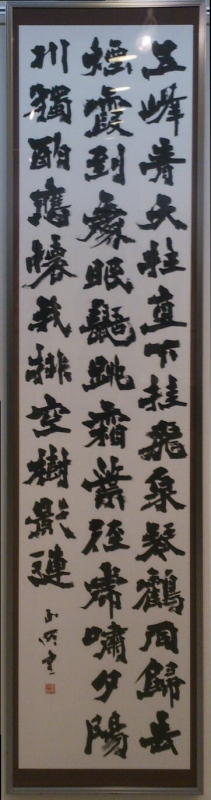 五峰青天柱直下挂飛泉琴鶴同歸去
煙霞到處眠鼯跳霜葉徑虎嘯夕陽
川獨酌應懷我排空樹影連